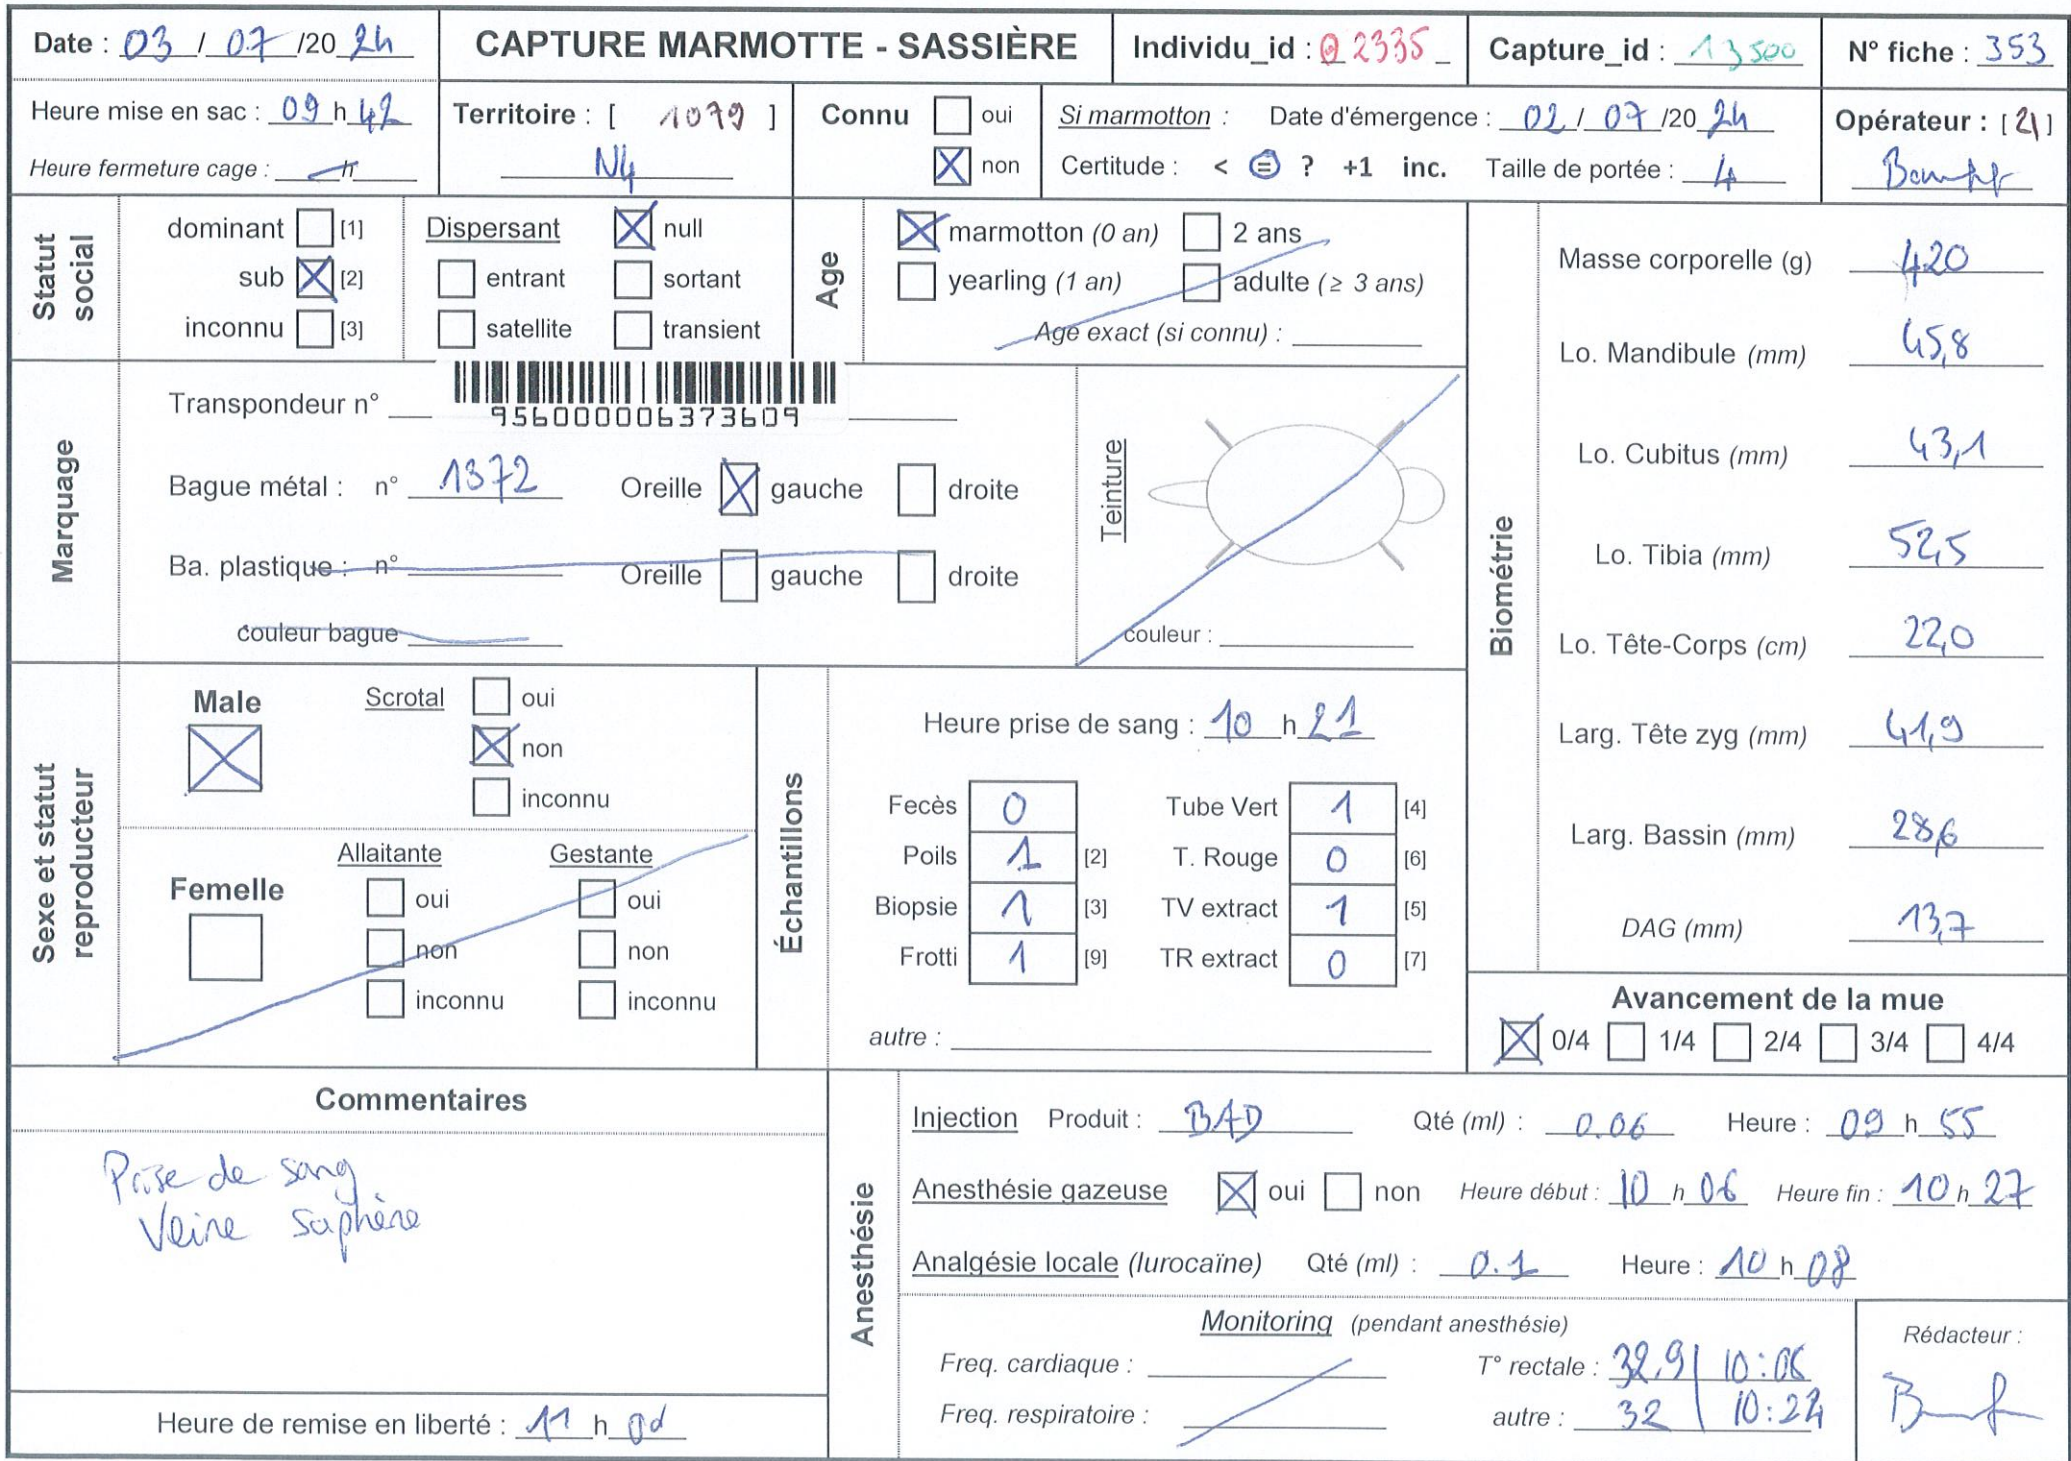 Date : 03 / 07 /20 24
CAPTURE MARMOTTE - SASSIÈRE
Individu_id : 02335
Capture_id : 13500
N° fiche : 353
Heure mise en sac : 09 h 42
Heure fermeture cage : h
Territoire : [ 1079 ]
N4
Connu oui
non
Si marmotton : Date d'émergence : 02 / 07 /20 24
Certitude : < = ? +1 inc. Taille de portée : 4
Opérateur : [21]
Statut social
dominant [1]
sub [2]
inconnu [3]
Dispersant null
entrant sortant
satellite transient
Age
marmotton (0 an) 2 ans
yearling (1 an) adulte (≥ 3 ans)
Age exact (si connu) :
Marquage
Transpondeur n°
956000006373609
Bague métal : n° 1372 Oreille gauche droite
Ba. plastique : n° Oreille gauche droite
couleur bague
Teinture
couleur :
Biométrie
Masse corporelle (g) 420
Lo. Mandibule (mm) 45,8
Lo. Cubitus (mm) 43,1
Lo. Tibia (mm) 52,5
Lo. Tête-Corps (cm) 22,0
Larg. Tête zyg (mm) 41,9
Larg. Bassin (mm) 28,6
DAG (mm) 13,7
Sexe et statut reproducteur
Male
Scrotal oui
non
inconnu
Femelle
Allaitante Gestante
oui oui
non non
inconnu inconnu
Échantillons
Heure prise de sang : 10 h 21
Fecès 0 Tube Vert 1 [4]
Poils 1 [2] T. Rouge 0 [6]
Biopsie 1 [3] TV extract 1 [5]
Frotti 1 [9] TR extract 0 [7]
autre :
Avancement de la mue
0/4 1/4 2/4 3/4 4/4
Commentaires
Prise de sang
Veine saphène
Heure de remise en liberté : 11 h
Anesthésie
Injection Produit : BAD Qté (ml) : 0.06 Heure : 09 h 55
Anesthésie gazeuse oui non Heure début : 10 h 06 Heure fin : 10 h 27
Analgésie locale (lurocaïne) Qté (ml) : 0.1 Heure : 10 h 08
Monitoring (pendant anesthésie)
Freq. cardiaque : T° rectale : 32,9 | 10:06
Freq. respiratoire : autre : 32 | 10:24
Rédacteur :